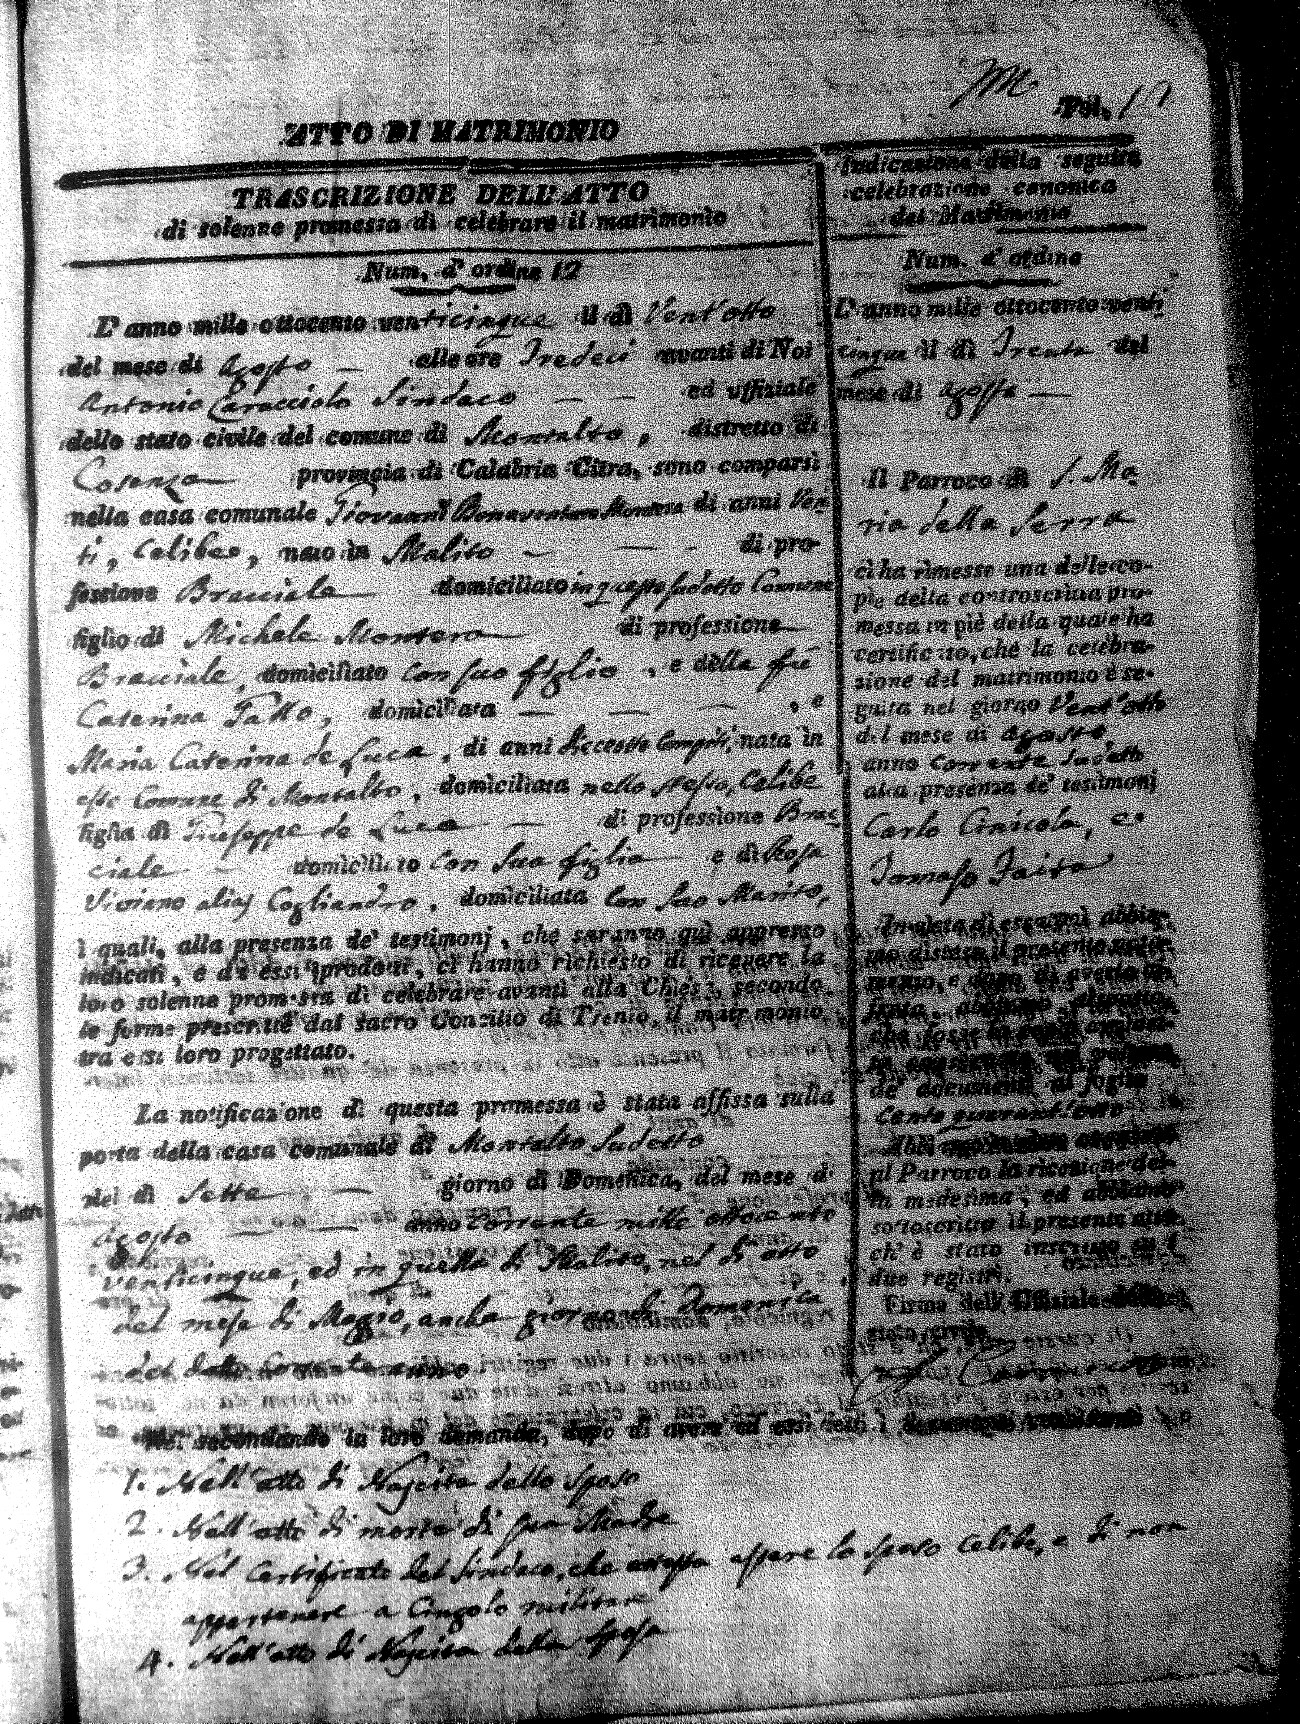 Fol. 12
ATTO DI MATRIMONIO
TRASCRIZIONE DELL'ATTO
di solenne promessa di celebrare il matrimonio
Num. d' ordine 12
L' anno mille ottocento venticinque il dì Vent'otto
del mese di Agosto — alle ore Tredeci avanti di Noi
Antonio Caracciolo Sindaco — — ed uffiziale
dello stato civile del comune di Montalto, distretto di
Cosenza provincia di Calabria Citra, sono comparsi
nella casa comunale Giovanni Bonaventura Montera di anni Ven
ti, Celibeo, nato in Malito — — - di pro-
fessione Bracciale domiciliato in questo sudetto Comune
figlio di Michele Montera di professione
Bracciale, domiciliato con suo figlio, e della fu
Caterina Gatto, domiciliata — — —, e
Maria Caterina de Luca, di anni diecesette compiti, nata in
esso Comune di Montalto, domiciliata nello stesso, Celibe
figlia di Giuseppe de Luca — di professione Brac
ciale - domiciliato con sua figlia e di Rosa
Viviano alias Cogliandro, domiciliata con suo Marito,
i quali, alla presenza de' testimonj, che saranno quì appresso
indicati, e da essi prodotti, ci hanno richiesto di ricevere la
loro solenne promessa di celebrare avanti alla Chiesa, secondo
le forme prescritte dal sacro Concilio di Trento, il matrimonio
tra essi loro progettato.
La notificazione di questa promessa è stata affissa sulla
porta della casa comunale di Montalto sudetto
nel dì Sette — giorno di Domenica, del mese di
Agosto — anno corrente mille ottocento
venticinque, ed in quella di Malito, nel dì otto
del mese di Maggio, anche giorno di domenica
del detto corrente anno.
Noi secondando la loro domanda, dopo di avere ad essi letti i
1. Nell'atto di Nascita dello sposo
2. Nell'atto di morte di sua Madre
3. Nel Certificato del Sindaco, che attesta essere lo sposo celibe, e di non
appartenere a Cingolo militare
4. Nell'atto di Nascita della sposa
Indicazione della seguita
celebrazione canonica
del Matrimonio
Num. d' ordine
L' anno mille ottocento venti
cinque il dì Trenta del
mese di Agosto —
Il Parroco di S. Ma
ria della Serra
ci ha rimesso una delle co-
pie della controscritta pro-
messa in piè della quale ha
certificato, che la celebra-
zione del matrimonio è se-
guita nel giorno Vent'otto
del mese di Agosto
anno corrente sudetto
alla presenza de' testimonj
Carlo Cinicola, e
Tomaso Faita
In vista di essa noi abbia-
mo disteso il presente notamento,
de' documenti al foglio
Cento quarant'otto
al Parroco la ricezione del-
la medesima, ed abbiamo
sottoscritto il presente atto,
ch' è stato inscritto su i
due registri.
Firma dell' Uffiziale dello
stato civile